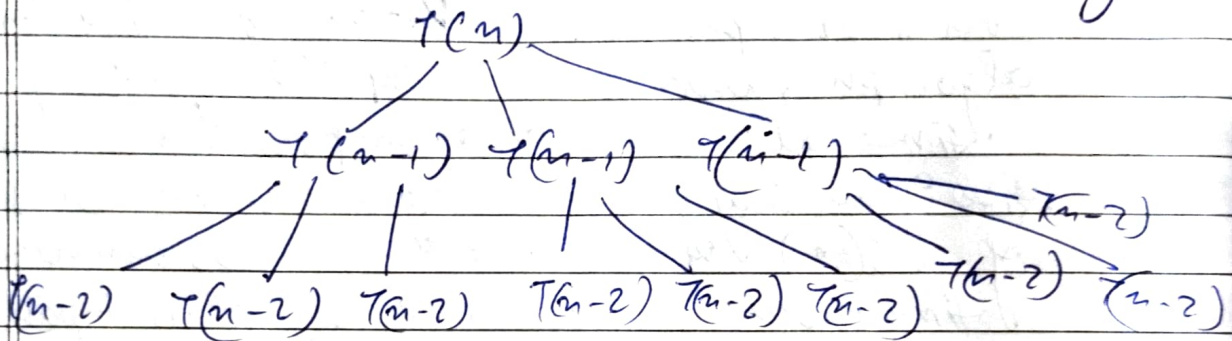 T(n)
T(n-1) T(n-1) T(n-1)
T(n-2)
T(n-2) T(n-2) T(n-2) T(n-2) T(n-2) T(n-2) T(n-2) T(n-2)